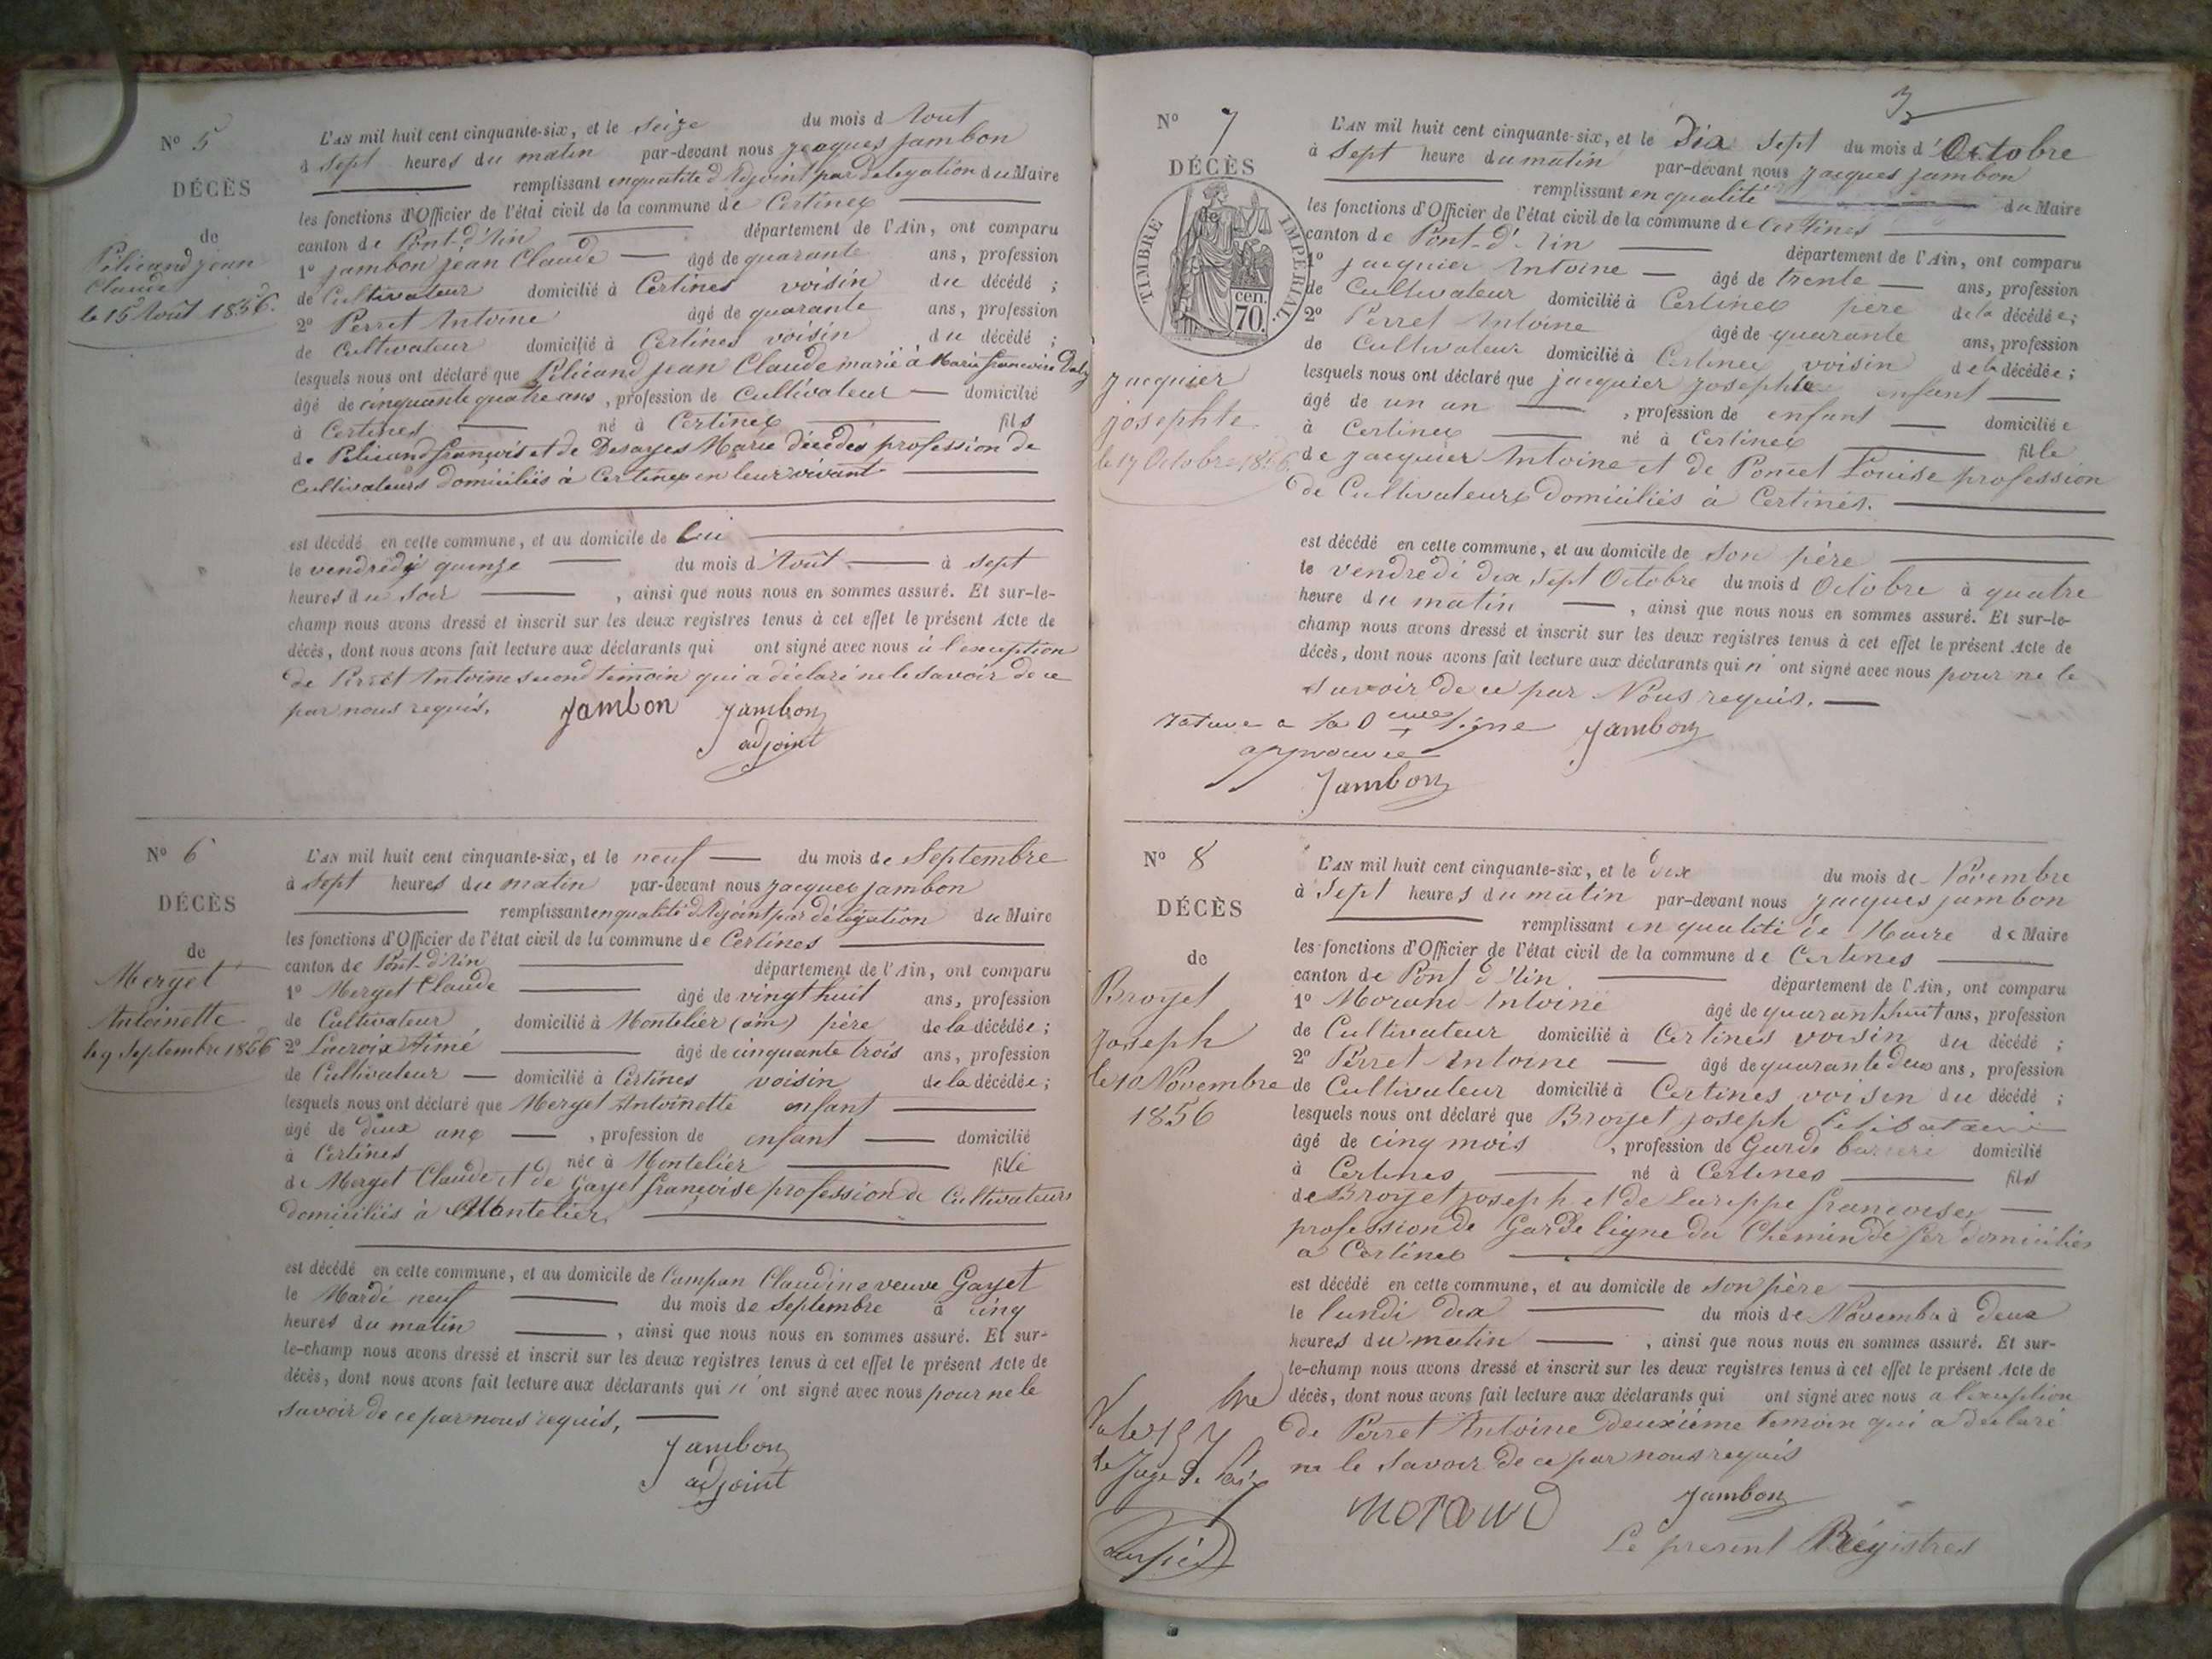 Nº 5
DÉCÈS
de
Pélicand jean
Claude
le 15 Août 1856.
L'AN mil huit cent cinquante-six, et le seize du mois d'Août
à sept heures du matin par-devant nous jacques jambon
remplissant en qualité d'Adjoint par délégation du Maire
les fonctions d'Officier de l'état civil de la commune de Certines
canton de Pont-d'Ain département de l'Ain, ont comparu
1º jambon jean Claude âgé de quarante ans, profession
de Cultivateur domicilié à Certines voisin du décédé ;
2º Perret Antoine âgé de quarante ans, profession
de Cultivateur domicilié à Certines voisin du décédé ;
lesquels nous ont déclaré que Pélicand jean Claude marié à Marie françoise
âgé de cinquante quatre ans, profession de Cultivateur domicilié
à Certines né à Certines fils
de Pélicand françois et de Desayes Marie décédés profession de
Cultivateurs domiciliés à Certines en leur vivant
est décédé en cette commune, et au domicile de Lui
le vendredi quinze du mois d'Août à sept
heures du soir , ainsi que nous nous en sommes assuré. Et sur-le-
champ nous avons dressé et inscrit sur les deux registres tenus à cet effet le présent Acte de
décès, dont nous avons fait lecture aux déclarants qui ont signé avec nous à l'exception
de Perret Antoine second témoin qui a déclaré ne le savoir de ce
par nous requis.
Jambon Jambon
adjoint
Nº 6
DÉCÈS
de
Merget
Antoinette
le 9 Septembre 1856
L'AN mil huit cent cinquante-six, et le neuf du mois de Septembre
à sept heures du matin par-devant nous jacques jambon
remplissant en qualité d'Adjoint par délégation du Maire
les fonctions d'Officier de l'état civil de la commune de Certines
canton de Pont-d'Ain département de l'Ain, ont comparu
1º Merget Claude âgé de vingt huit ans, profession
de Cultivateur domicilié à Montelier (ain) père de la décédée ;
2º Lacroix Aimé âgé de cinquante trois ans, profession
de Cultivateur domicilié à Certines voisin de la décédée ;
lesquels nous ont déclaré que Merget Antoinette enfant
âgé de deux ans , profession de enfant domicilié
à Certines née à Montelier fille
de Merget Claude et de Gayet françoise profession de Cultivateurs
domiciliés à Montelier
est décédé en cette commune, et au domicile de Campan Claudine veuve Gayet
le Mardi neuf du mois de septembre à cinq
heures du matin , ainsi que nous nous en sommes assuré. Et sur-
le-champ nous avons dressé et inscrit sur les deux registres tenus à cet effet le présent Acte de
décès, dont nous avons fait lecture aux déclarants qui n'ont signé avec nous pour ne le
savoir de ce par nous requis,
Jambon
adjoint
3
Nº 7
DÉCÈS
de
TIMBRE IMPÉRIAL
70. cen.
jacquier
josephte
le 17 Octobre 1856.
L'AN mil huit cent cinquante-six, et le Dix Sept du mois d'Octobre
à Sept heure du matin par-devant nous jacques jambon
remplissant en qualité du Maire
les fonctions d'Officier de l'état civil de la commune de Certines
canton de Pont-d'Ain département de l'Ain, ont comparu
1º jacquier Antoine âgé de trente ans, profession
de Cultivateur domicilié à Certines père de la décédée ;
2º Perret Antoine âgé de quarante ans, profession
de Cultivateur domicilié à Certines voisin de la décédée ;
lesquels nous ont déclaré que jacquier josephte enfant
âgé de un an , profession de enfant domicilié e
à Certines né à Certines fille
de jacquier Antoine et de Poncet Louise profession
de Cultivateurs domiciliés à Certines.
est décédé en cette commune, et au domicile de son père
le vendredi dix sept Octobre du mois d Octobre à quatre
heure du matin , ainsi que nous nous en sommes assuré. Et sur-le-
champ nous avons dressé et inscrit sur les deux registres tenus à cet effet le présent Acte de
décès, dont nous avons fait lecture aux déclarants qui n'ont signé avec nous pour ne le
savoir de ce par Nous requis.
rature a la eme ligne Jambon
approuvée
Jambon
Nº 8
DÉCÈS
de
Broyet
Joseph
le 10 Novembre
1856
L'AN mil huit cent cinquante-six, et le dix du mois de Novembre
à Sept heures du matin par-devant nous jacques jambon
remplissant en qualité de Maire de Maire
les fonctions d'Officier de l'état civil de la commune de Certines
canton de Pont d'Ain département de l'Ain, ont comparu
1º Morand Antoine âgé de quarant huit ans, profession
de Cultivateur domicilié à Certines voisin du décédé ;
2º Perret Antoine âgé de quarante deux ans, profession
de Cultivateur domicilié à Certines voisin du décédé ;
lesquels nous ont déclaré que Broyet joseph Célibataire
âgé de cinq mois , profession de Garde barrière domicilié
à Certines né à Certines fils
de Broyet joseph et de françoise
profession de Garde ligne du Chemin de fer domiciliés
a Certines
est décédé en cette commune, et au domicile de son père
le lundi dix du mois de Novembre à deux
heures du matin , ainsi que nous nous en sommes assuré. Et sur-
le-champ nous avons dressé et inscrit sur les deux registres tenus à cet effet le présent Acte de
décès, dont nous avons fait lecture aux déclarants qui ont signé avec nous a l'exception
de Perret Antoine deuxième témoin qui a déclaré
ne le savoir de ce par nous requis
le juge de Paix
Morand Jambon
Le présent Régistres